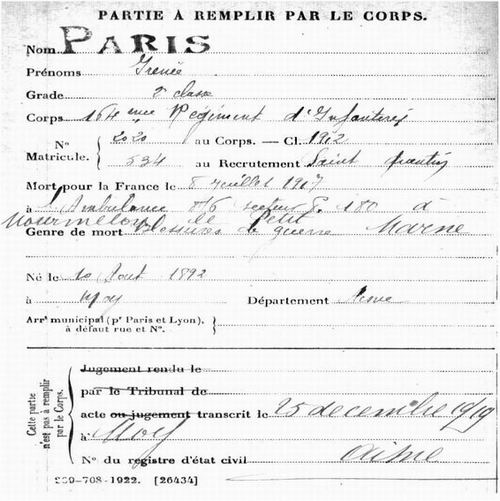 PARTIE À REMPLIR PAR LE CORPS.
Nom PARIS
Prénoms Irénée
Grade 2e classe
Corps 164ème Régiment d'Infanterie
N° Matricule. { 2020 au Corps. — Cl. 1912
534 au Recrutement Saint Quentin
Mort pour la France le 8 juillet 1917
à l'Ambulance 8/6 secteur P. 180 à
Mourmelon le Petit Marne
Genre de mort Blessures de guerre
Né le 10 Août 1892
à Moy Département Aisne
Arrt municipal (pr Paris et Lyon), à défaut rue et N°. {
Cette partie n'est pas à remplir par le Corps.
Jugement rendu le
par le Tribunal de
acte ou jugement transcrit le 25 decembre 1919
à Moy
Aisne
N° du registre d'état civil
-708-1922. [26434]